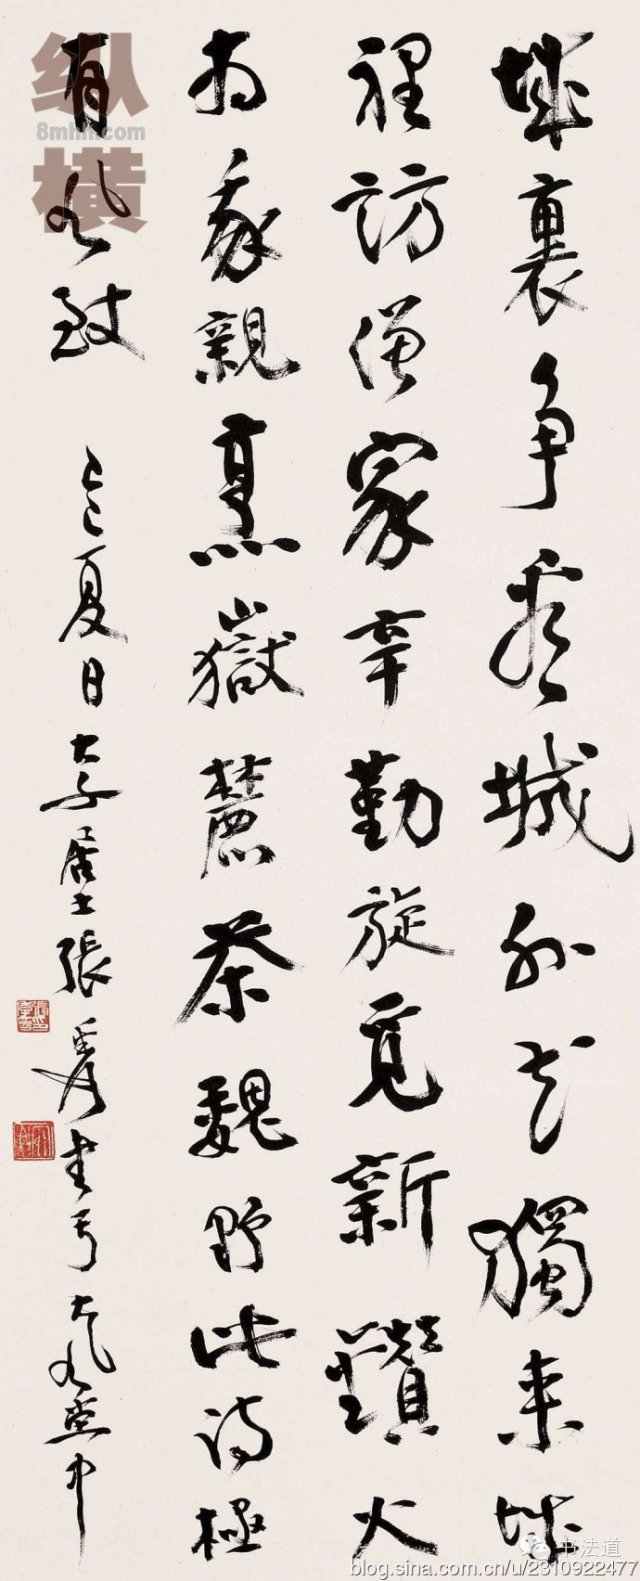 城裏爭看城外花獨來城
裡訪僧家辛勤旋覓新鑽火
为我親烹嶽麓茶魏野此詩極
有風致 乙巳夏日大千居士張爰書于大風堂中
纵横
书法道
blog.sina.com.cn/u/2310922477